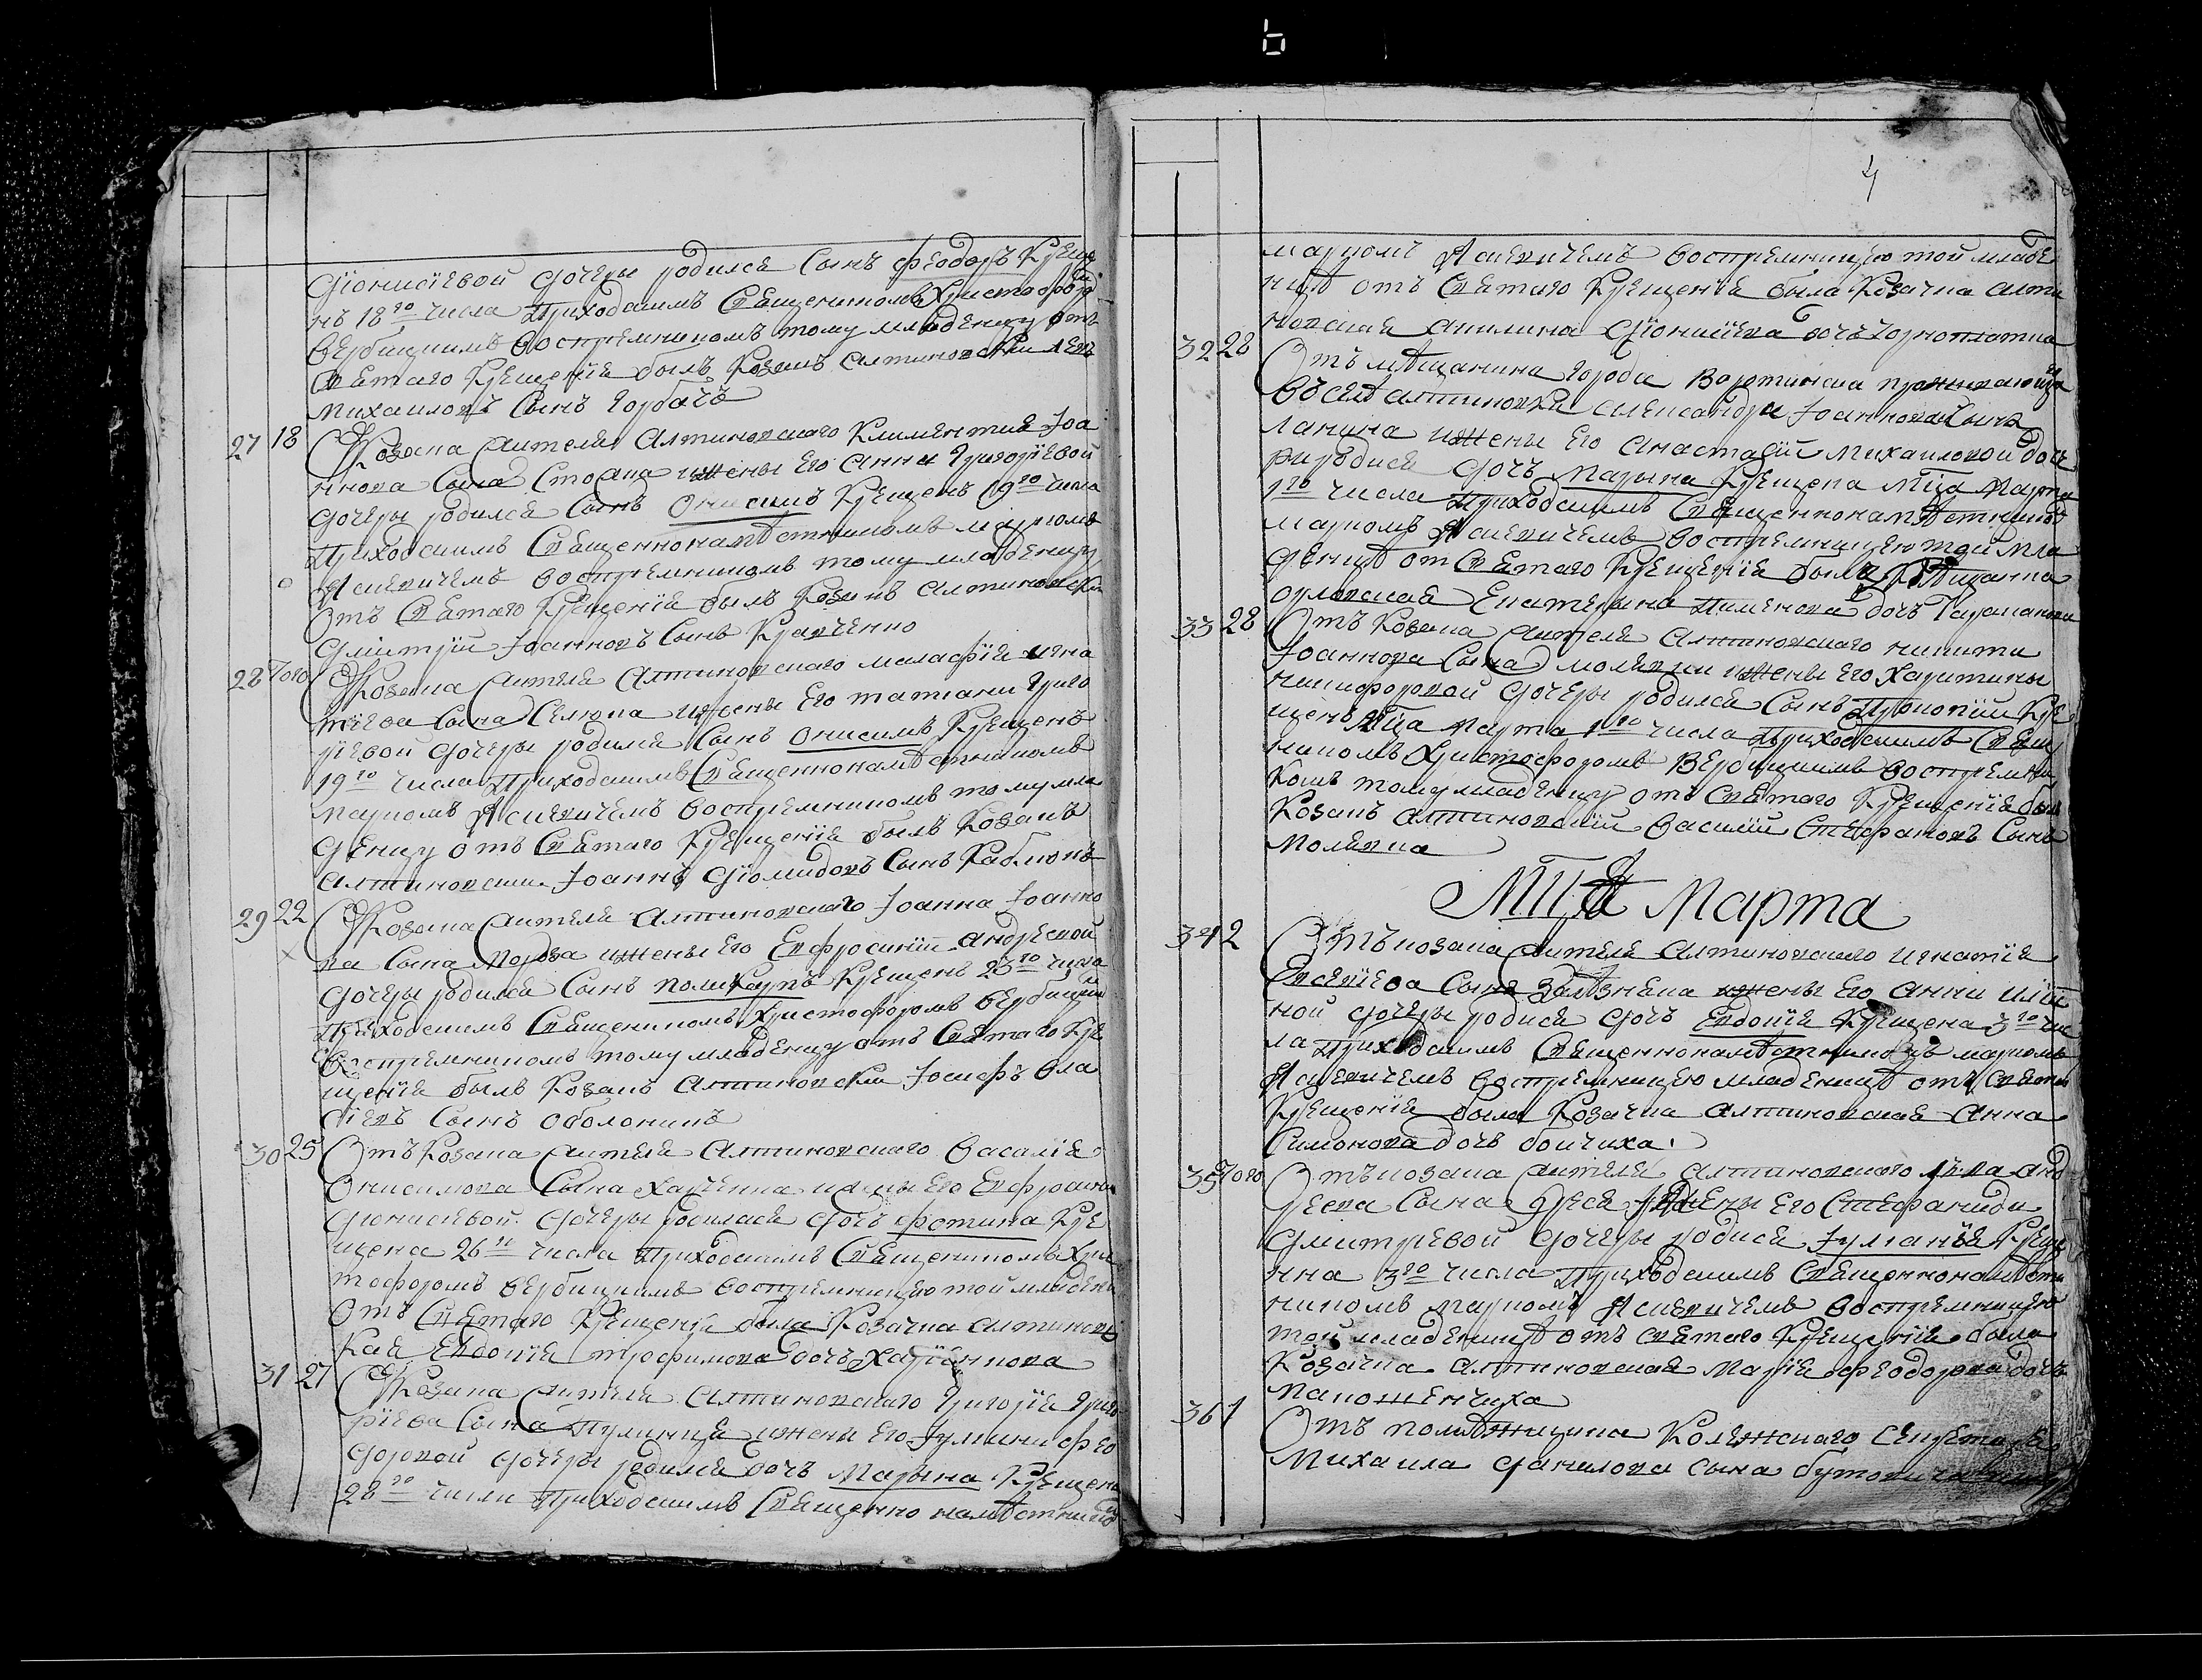 6
Дїонисїевой дочеры родился Сынъ Феодоръ Креще
нъ 18го числа Приходскимъ Священникомъ Христофоро
Вербицкимъ воспремникомъ тому младенцу отъ
Святаго Крещенїя былъ Козакъ Алтиновскїй
Михаиловъ Сынъ Горбачъ
27 18 Отъ Козака жителя Алтиновскаго Климентия Іоа
ннова Сына Стоана и жены Его Анны Григорїевой
дочеры родился Сынъ Онисимъ Крещенъ 19го числа
Приходскимъ Священнонамѣстникомъ Маркомъ
Ясневичемъ воспремникомъ тому младенцу
Отъ Святаго Крещенїя былъ Козакъ Алтиновскїй
Димитрїй Іоанновъ Сынъ Кравченко
28 того Отъ Козака жителя Алтиновскаго Маласфїя Игна
тїева Сына Селюка и жены Его Татїаны Григо
рїевой дочеры родился Сынъ Онисимъ Крещенъ
19го числа Приходскимъ Священнонамѣстникомъ
Маркомъ Ясневичемъ воспремникомъ тому мла
денцу отъ Святаго Крещенїя былъ Козакъ
Алтиновскїй Іоаннъ Дїомидовъ Сынъ
29 22 Отъ Козака жителя Алтиновскаго Іоанна Іоанно
ва Сына Мороза и жены Его Евфросинїи Андреевой
дочеры родился Сынъ Поликарпъ Крещенъ 23го числа
Приходскимъ Священникомъ Христофоромъ Вербицкимъ
Воспремникомъ тому младенцу отъ Святаго Кре
щенїя былъ Козакъ Алтиновскїй Іосифъ Вла
сїевъ Сынъ Оболоникъ
30 25 Отъ Козака жителя Алтиновскаго Василїя
Онисимова Сына Харченка и жены Его Евфросини
Дїонисїевой дочеры родилася дочъ Фотина Кре
щена 26го числа Приходскимъ Священникомъ Хрис
тофоромъ Вербицкимъ воспремницею той младени
Отъ Святаго Крещенїя была Козачка Алтиновс
кая Евдокїя Трофимова дочъ
31 27 Отъ Козака жителя Алтиновскаго Григорїя Григо
рїева Сына и жены Его Іулїани Фео
доровой дочеры родился дочъ Марына Крещена
28го числа Приходскимъ Священно намѣстнико
4
Маркомъ Ясневичемъ воспремницею той младе
ницѣ отъ Святаго Крещенїя была Козачка Алти
новская Акилина Дїонисїева дочъ
32 28 Отъ мѣщанина города проживающа
въ селѣ Алтиновки Александра Іоаннова Сына
Ланина и жены Его Анастасїи Михаиловой доче
ри родися дочъ Марына Крещена Мца Марта
1го числа Приходскимъ Священнонамѣстникомъ
Маркомъ Ясневичемъ воспремницею той мла
деницѣ отъ Святаго Крещенїя была
орловская Екатерына дочъ
33 28 Отъ Козака жителя Алтиновскаго Никити
Іоаннова Сына Молявки и жены Его Харитины
Никифоровой дочеры родился Сынъ Прокопїй Кре
щенъ Мца Марта 1го числа Приходскимъ Свящ
никомъ Христофоромъ Вербицкимъ воспремни
комъ тому младенцу отъ Святаго Крещенїя былъ
Козакъ Алтиновскїй Василїй Стефановъ Сынъ
Молявка
Мца Марта
34 2 Отъ козака жителя Алтиновскаго Игнатїя
Евсевїева Сына Зализняка и жены Его Анни Илїи
ной дочеры родися дочъ Евдокїя Крещена 3го чис
ла Приходскимъ Священнонамѣстникомъ Маркомъ
Ясневичемъ воспремницею младеницѣ отъ Святаго
Крещенїя была Козачка Алтиновская Анна
Симонова дочъ Бойчиха.
35 того Отъ козака жителя Алтиновскаго Анд
реева Сына и жены Его Стефаниди
Дмитрїевой дочеры родися Іулїанїя Креще
нна 3го числа Приходскимъ Священнонамѣст
никомъ Маркомъ Ясневичемъ воспремницею
той младеницѣ отъ Святаго Крещенїя была
Козачка Алтиновская Марїя Феодорова дочъ
36 1 Отъ помѣщицика Колежскаго Секретаря
Михаила Данилова сына Бутовича